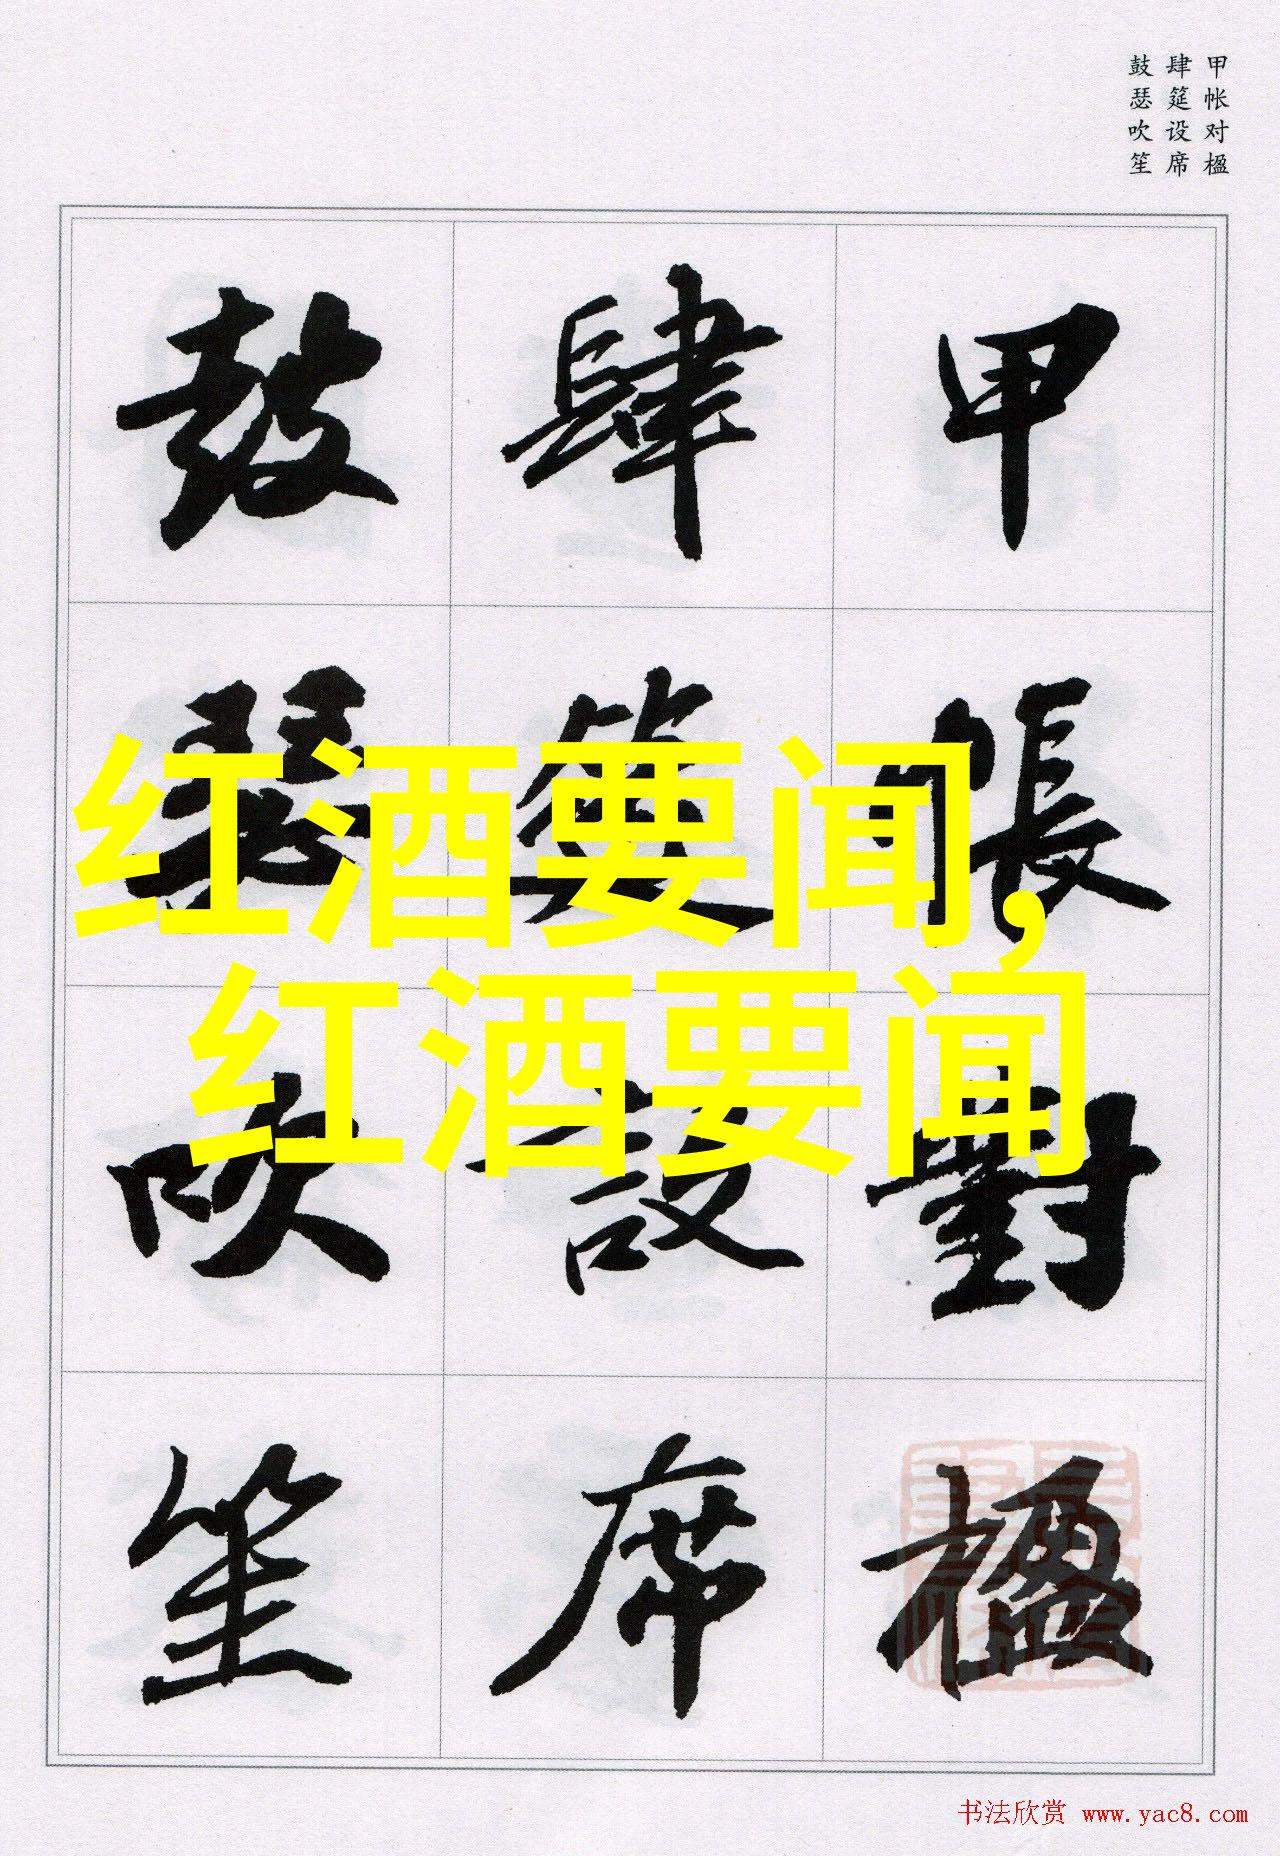 甲帐对楹
肆筵设席
鼓瑟吹笙
甲帳對楹
肆筵設席
鼓瑟吹笙
红酒要闻,
红酒要闻
书法欣赏 www.yac8.com